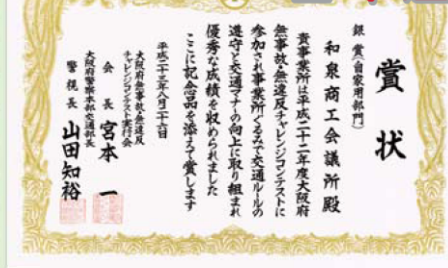 賞状
銀賞(自家用部門)
和泉商工会議所殿
貴事業所は平成二十二年度大阪府
無事故・無違反チャレンジコンテストに
参加され事業所ぐるみで交通ルールの
遵守と交通マナーの向上に取り組まれ
優秀な成績を収められました
ここに記念品を添えて賞します
平成二十三年八月二十六日
大阪府無事故・無違反
チャレンジコンテスト実行会
会長 宮本 一
大阪府警察本部交通部長
警視長 山田知裕